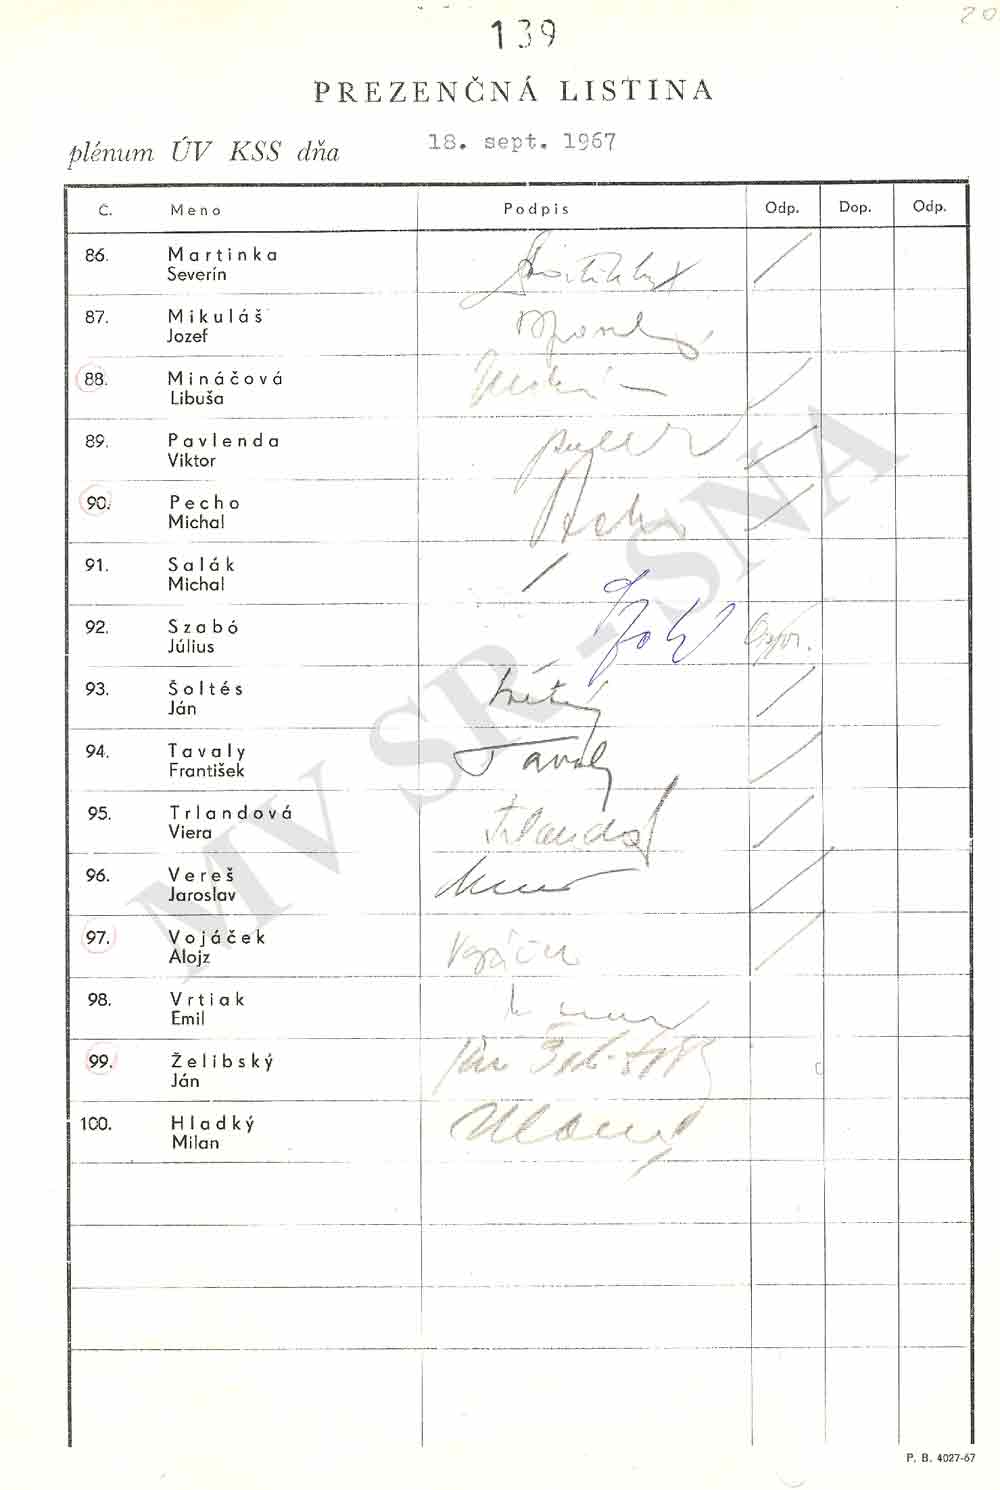 20
139
PREZENČNÁ LISTINA
plénum ÚV KSS dňa 18. sept. 1967
Č. Meno Podpis Odp. Dop. Odp.
86. Martinka
Severín
87. Mikuláš
Jozef
88. Mináčová
Libuša
89. Pavlenda
Viktor
90. Pecho
Michal
Pecho
91. Salák
Michal
92. Szabó
Július
93. Šoltés
Ján
94. Tavaly
František
Tavaly
95. Trlandová
Viera
96. Vereš
Jaroslav
97. Vojáček
Alojz
98. Vrtiak
Emil
99. Želibský
Ján
100. Hladký
Milan
MV SR - SNA
P. B. 4027-67